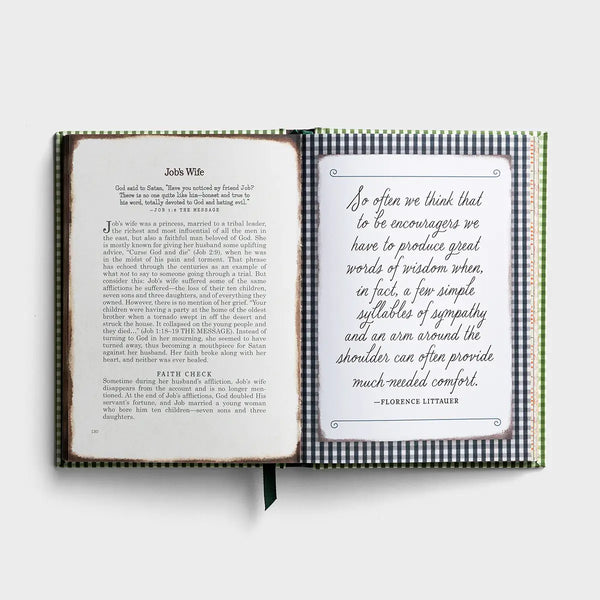 Job's Wife
God said to Satan, "Have you noticed my friend Job?
There is no one quite like him—honest and true to
his word, totally devoted to God and hating evil."
—JOB 1:8 THE MESSAGE
Job's wife was a princess, married to a tribal leader,
the richest and most influential of all the men in
the east, but also a faithful man beloved of God. She
is mostly known for giving her husband some uplifting
advice, "Curse God and die" (Job 2:9), when he was
in the midst of his pain and torment. That phrase
has echoed through the centuries as an example of
what not to say to someone going through a trial. But
consider this: Job's wife suffered some of the same
afflictions he suffered—the loss of their ten children,
seven sons and three daughters, and of everything they
owned. However, there is no mention of her grief. "Your
children were having a party at the home of the oldest
brother when a tornado swept in off the desert and
struck the house. It collapsed on the young people and
they died..." (Job 1:18-19 THE MESSAGE). Instead of
turning to God in her mourning, she seemed to have
turned away, thus becoming a mouthpiece for Satan
against her husband. Her faith broke along with her
heart, and neither was ever healed.
FAITH CHECK
Sometime during her husband's affliction, Job's wife
disappears from the account and is no longer men-
tioned. At the end of Job's affliction, God doubled His
servant's fortune, and Job married a young woman
who bore him ten children—seven sons and three
daughters.
130
So often we think that
to be encouragers we
have to produce great
words of wisdom when,
in fact, a few simple
syllables of sympathy
and an arm around the
shoulder can often provide
much-needed comfort.
—FLORENCE LITTAUER